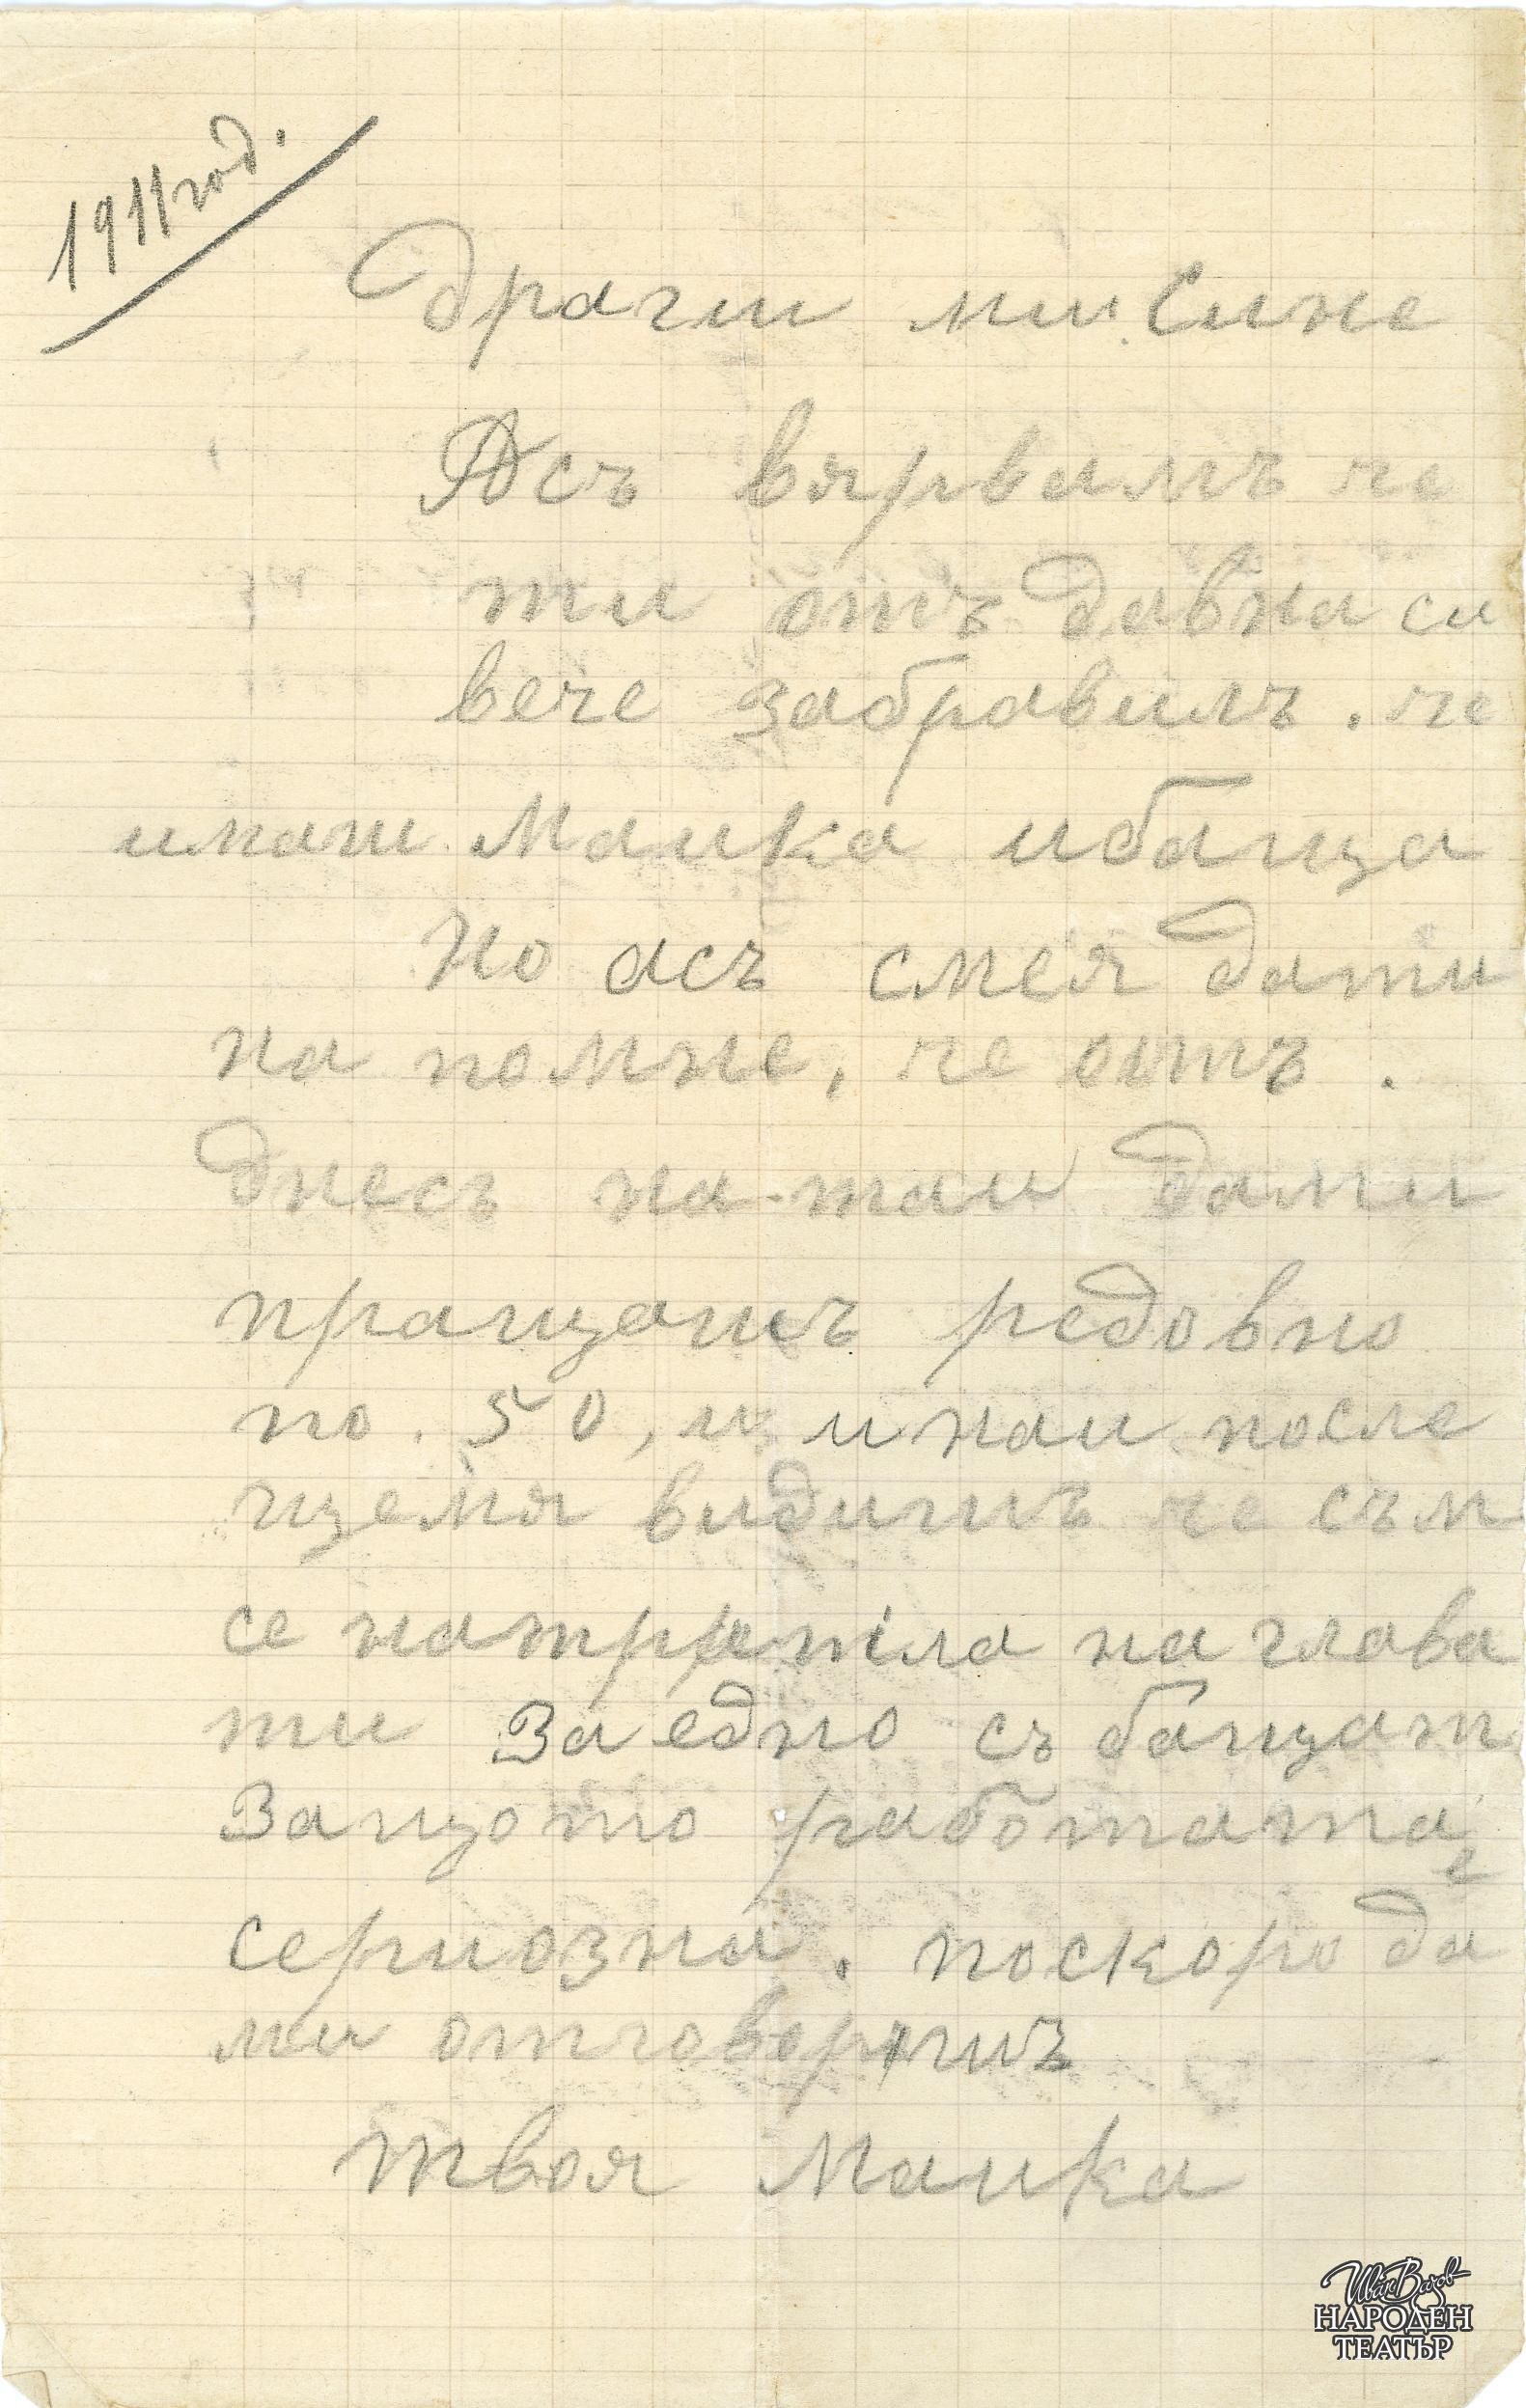 1911 год.
Драги ми Сине
Асъ вярвамъ че
ти отъ давна си
вече забравилъ. че
имаш Маика ибаща
Но асъ смея дати
на помне, че отъ.
днесъ на-таи дами
пращашъ редовно
по. 50, и инаи после
щемя видишъ че съм
се натратила на глава
ти За едно съ бащат
Защото работата
е
сериозна. поскоро да
ми отговоришъ
твоя Маика
Иван Вазов
НАРОДЕН
ТЕАТЪР